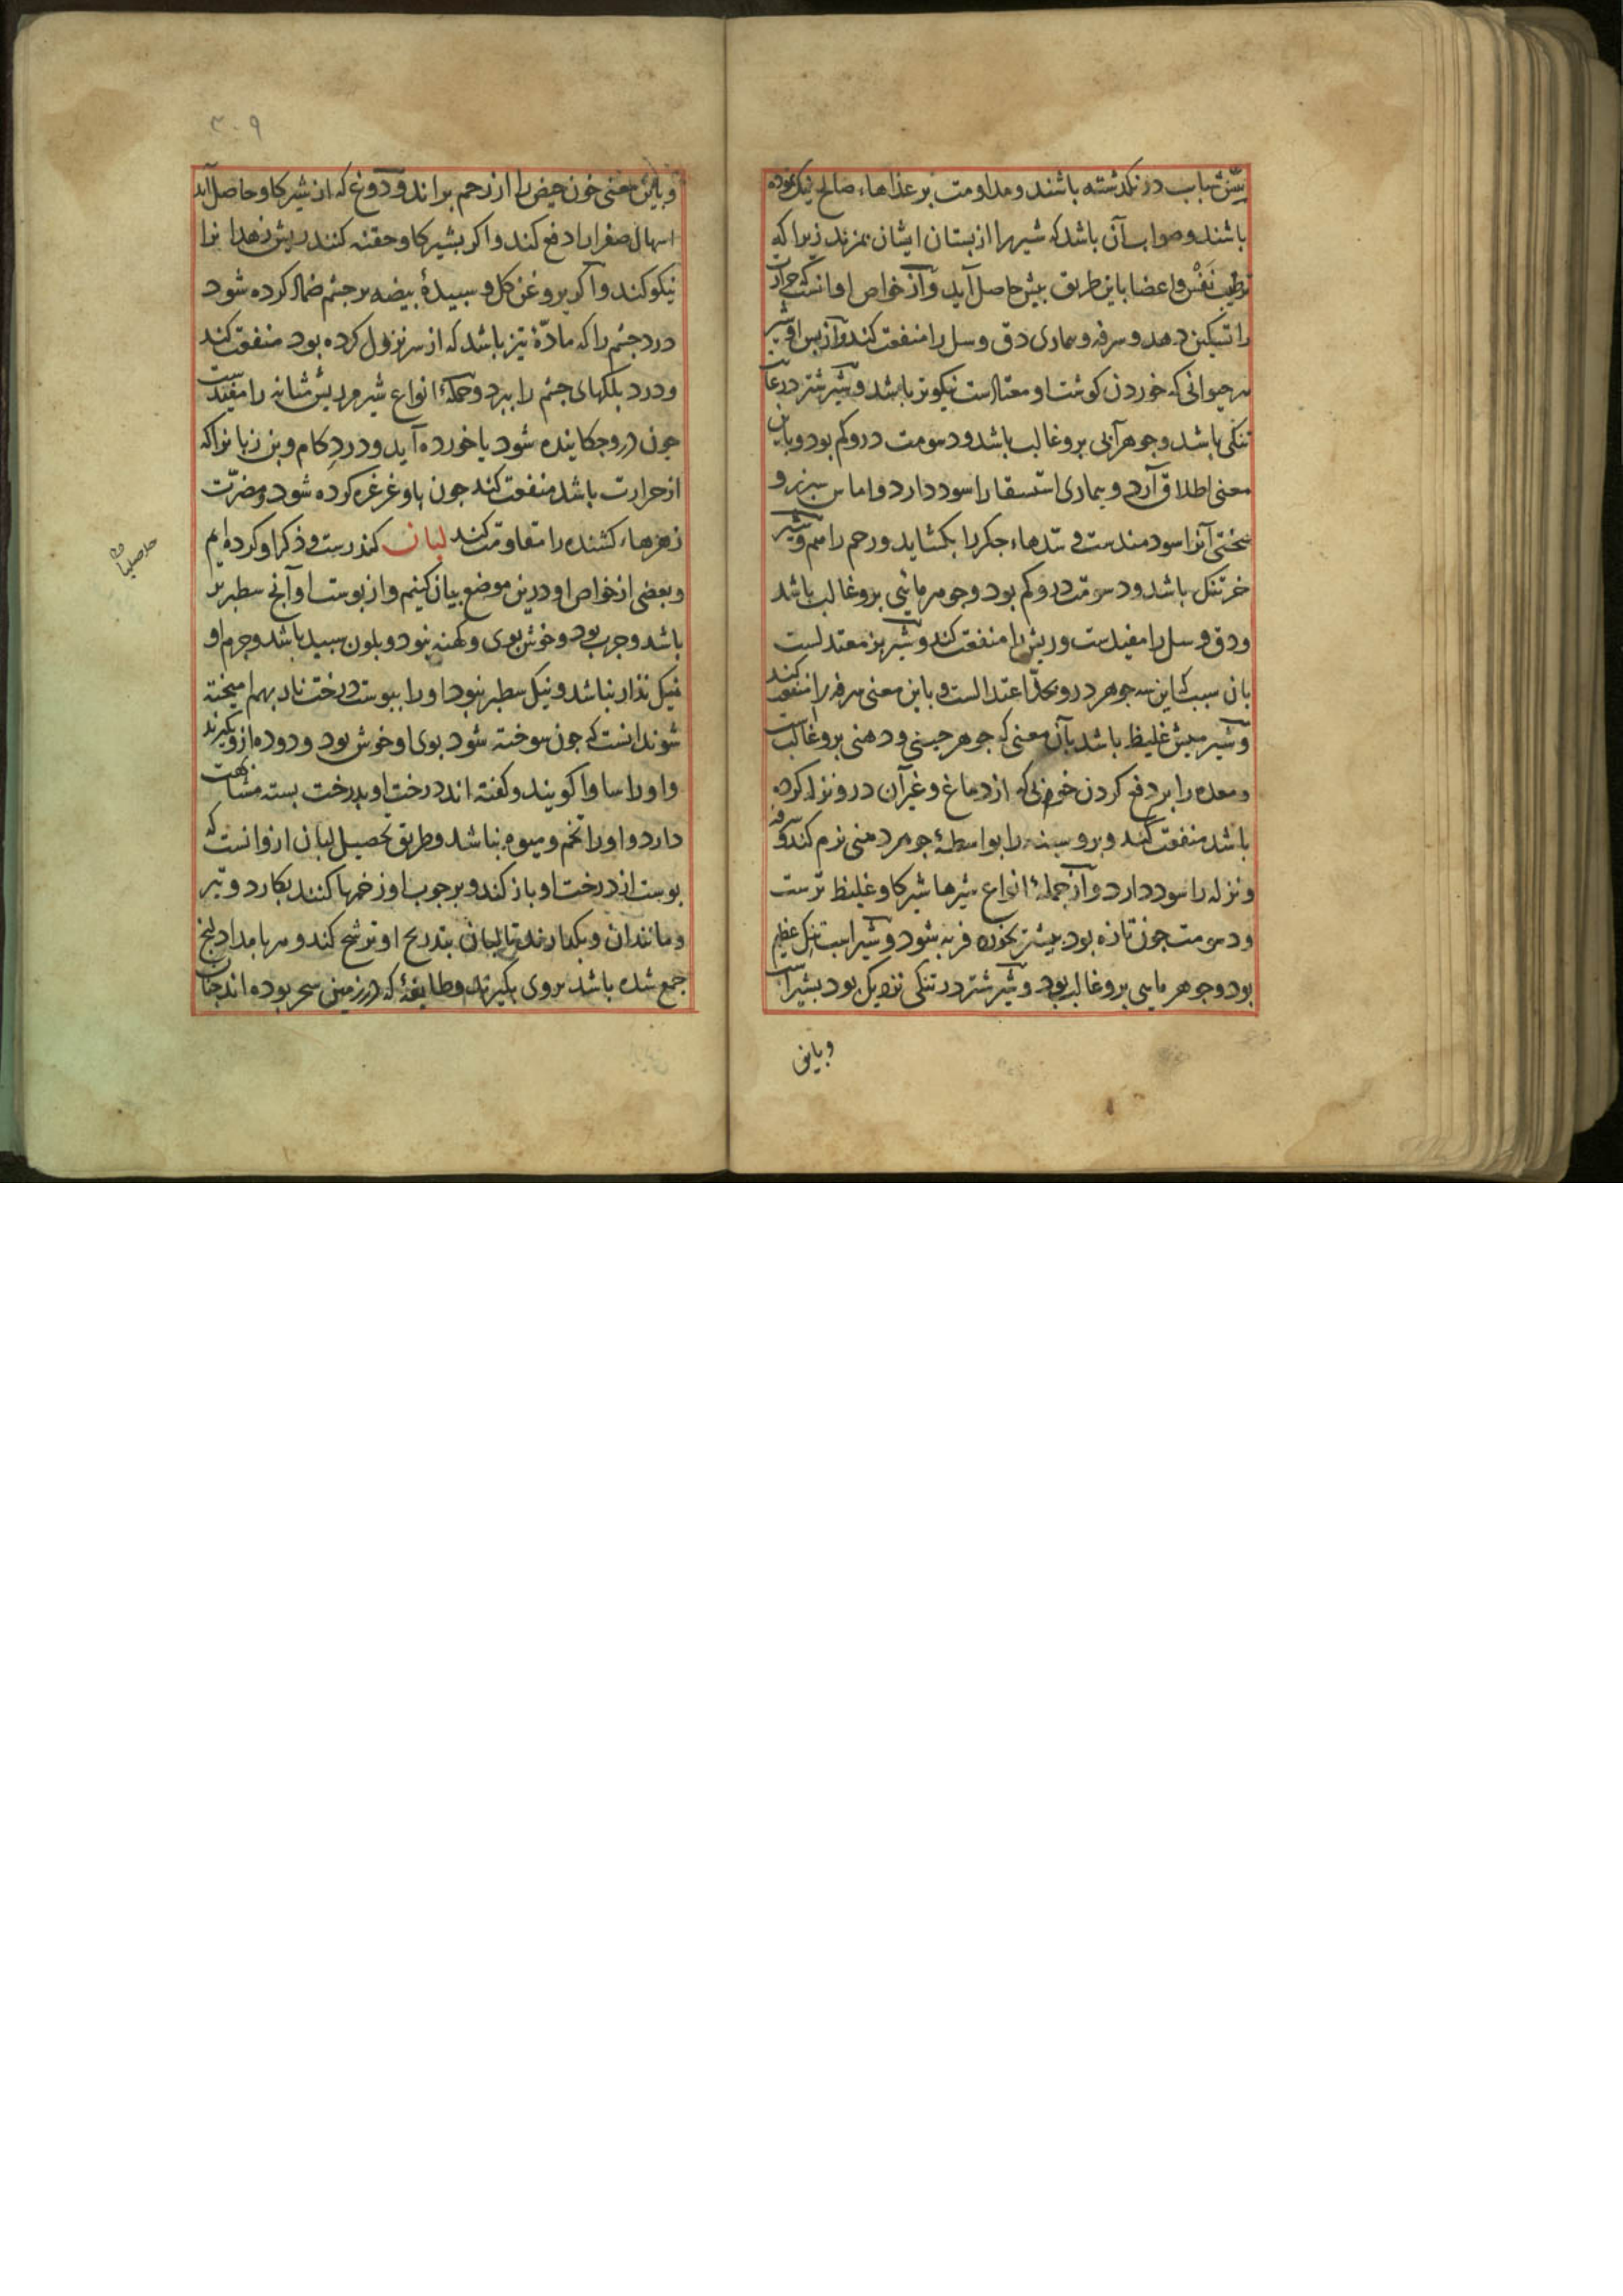 سنّ شباب در نکذشته باشند و مداومت بر غذاهاء صالح نیک نموده
باشند و صواب آن باشد که شیر را از بستان ایشان بمزند زیرا که
ترطیب نَفْس و اعضا باین طریق بیش حاصل آید و از خواص او انست که حرارت
را تسکین دهد و سرفه و بیماری دق و سل را منفعت کند و از بس او شیر
هر حیوانی که خوردن کوشت او معتادست نیکوتر باشد و شیر شتر در غایت
تنکی باشد و جوهر آبی برو غالب باشد و دسومت درو کم بود و باین
معنی اطلاق آرد و بیماری استسقا را سود دارد و اماس سبرز و
سختی آنرا سودمندست و سدّهاء جکر را بکشاید و رحم را هم و شیر
خر تنک باشد و دسومت درو کم بود و جوهر مائیی برو غالب باشد
و دق و سل را مفیدست و ریش را منفعت کند و شیر بز معتدلست
بان سبب که این سه جوهر درو بحدّ اعتدالست و باین معنی سرفه را منفعت کند
و شیر میش غلیظ باشد بآن معنی که جوهر جبنی و دهنی برو غالب است
و معده را بر دفع کردن خونی که از دماغ و غیر آن درو نزله کرده
باشد منفعت کند و بر و سینه را بواسطهٔ جوهر دهنی نرم کند و سرفه
و نزله را سود دارد و از جملهٔ انواع شیرها شیر کاو غلیظ ترست
و دسومت جون تازه بود بیشتر بخورد فربه شود و شیر اسب تنک عظیم
بود و جوهر مایی برو غالب بود و شیر شتر در تنکی نزدیک بود بشیر اسب
و باین
۳۰۹
و باین معنی خون حیض را از رحم براند و دوغ که از شیر کاو حاصل آید
اسهال صفرا را دفع کند و اکر بشیر کاو حقنه کنند ریش زهدا نرا
نیکو کند و اکر بروغن کل و سبیدهٔ بیضه بر جشم ضماد کرده شود
درد جشم را که مادّهٔ تیز باشد که از سر نزول کرده بود منفعت کند
و درد بلکهای جشم را ببرد و جملهٔ انواع شیر مر ریش مثانه را مفیدست
جون درو جکانیده شود یا خورده آید و درد کام و بن زبانرا که
از حرارت باشد منفعت کند جون باو غرغره کرده شود و مضرّت
زهرهاء کشنده را مقاومت کند لبان کندرست و ذکر او کرده ایم
و بعضی از خواص او درین موضع بیان کنیم و از بوست او آنج سطبرتر
باشد و جرب بود و خوش بوی و کهنه نبود و بلون سبید باشد و جرم او
نیک نذار نباشد و نیک سطبر نبود او را ببوست درخت نار بهم امیخته
شوند انست که جون سوخته شود بوی او خوش بود و دوده ازو بکیرند
و او را ساوا کویند و کفته اند درخت او بدرخت بسته مشابهت
دارد و او را تخم و میوه نباشد و طریق تحصیل لبان ازو انست که
بوست از درخت او باز کند و بر جوب او زخمها کنند بکارد و تبر
و مانند ان و بکذارند تا لبان بتدریج او ترشح کند و هر بامداد انج
جمع شده باشد بروی بکیرند و طایفهٔ که در زمین سحر بوده اند جنان